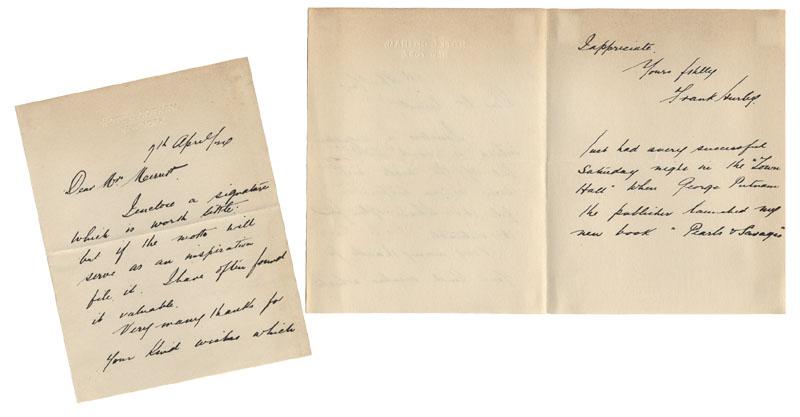 9th April/24
Dear Mr Merritt.
I enclose a signature
which is worth little.
but if the motto will
serve as an inspiration
file it. I have often found
it valuable.
Very many thanks for
Your Kind wishes which
I appreciate.
Yours fthlly
Frank Hurley
Just had a very successful
Saturday night in the "Town
Hall" when George Putnam
the publisher launched my
new book "Pearls & Savages"